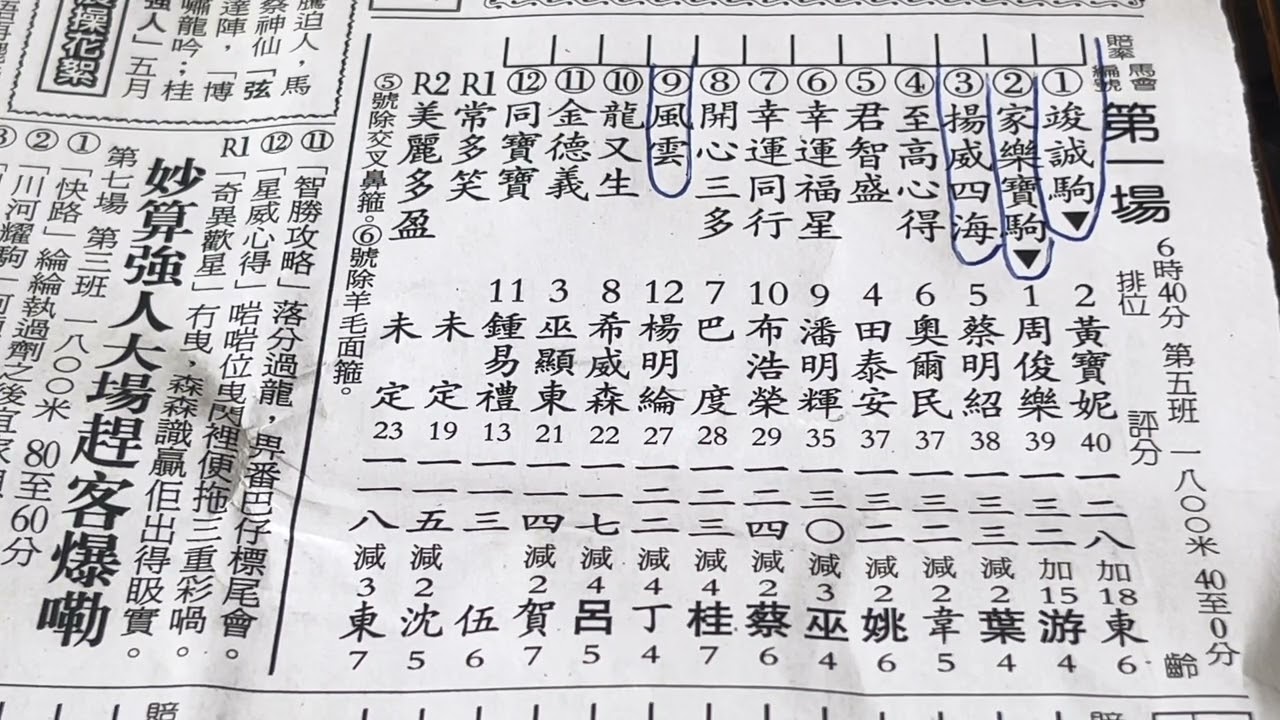 第一場 6時40分 第五班 一八〇〇米 40至0分
賠率 馬會編號 排位 評分 齡
① 竣誠駒▼ 2 黃寶妮 40 一二八 加18 東 6
② 家樂寶駒▼ 1 周俊樂 39 一三二 加15 游 4
③ 揚威四海 5 蔡明紹 38 一三三 減2 葉 4
④ 至高心得 6 奧爾民 37 一三二 減2 韋 5
⑤ 君智盛 4 田泰安 37 一三二 減2 姚 6
⑥ 幸運福星 9 潘明輝 35 一三〇 減3 巫 4
⑦ 幸運同行 10 布浩榮 29 一二四 減2 蔡 6
⑧ 開心三多 7 巴度 28 一二三 減4 桂 7
⑨ 風雲 12 楊明綸 27 一二二 減4 丁 4
⑩ 龍又生 8 希威森 22 一一七 減4 呂 5
⑪ 金德義 3 巫顯東 21 一一四 減2 賀 7
⑫ 同寶寶 11 鍾易禮 13 一一三 伍 6
R1 常多笑 未定 19 一一五 減2 沈 5
R2 美麗多盈 未定 23 一一八 減3 東 7
⑤號除交叉鼻箍。⑥號除羊毛面箍。
騰迫人，馬
蔡神仙「弦
達陣，「博
嘯龍吟；桂
強人」五月
操花絮
⑪「智勝攻略」落分過龍，畀番巴仔標尾會。
⑫「星威心得」啱啱位曳閃裡便拖三重彩喎。
R1「奇異歡星」冇曳，森森識贏佢出得昅實。
妙算強人大場趕客爆嘞
第七場 第三班 一八〇〇米 80至60分
①「快路」綸綸執過劑之後宜家
②「川河耀駒」
賠率
賠率